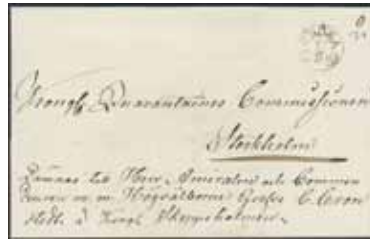 Kongl. Quarantaines Commissionen
Stockholm
Lämnas till Herr Amiralen och Commen
deuren m. m. Högvälborne Grefve C. Cron
stedt å Kongl. Skeppsholmen.